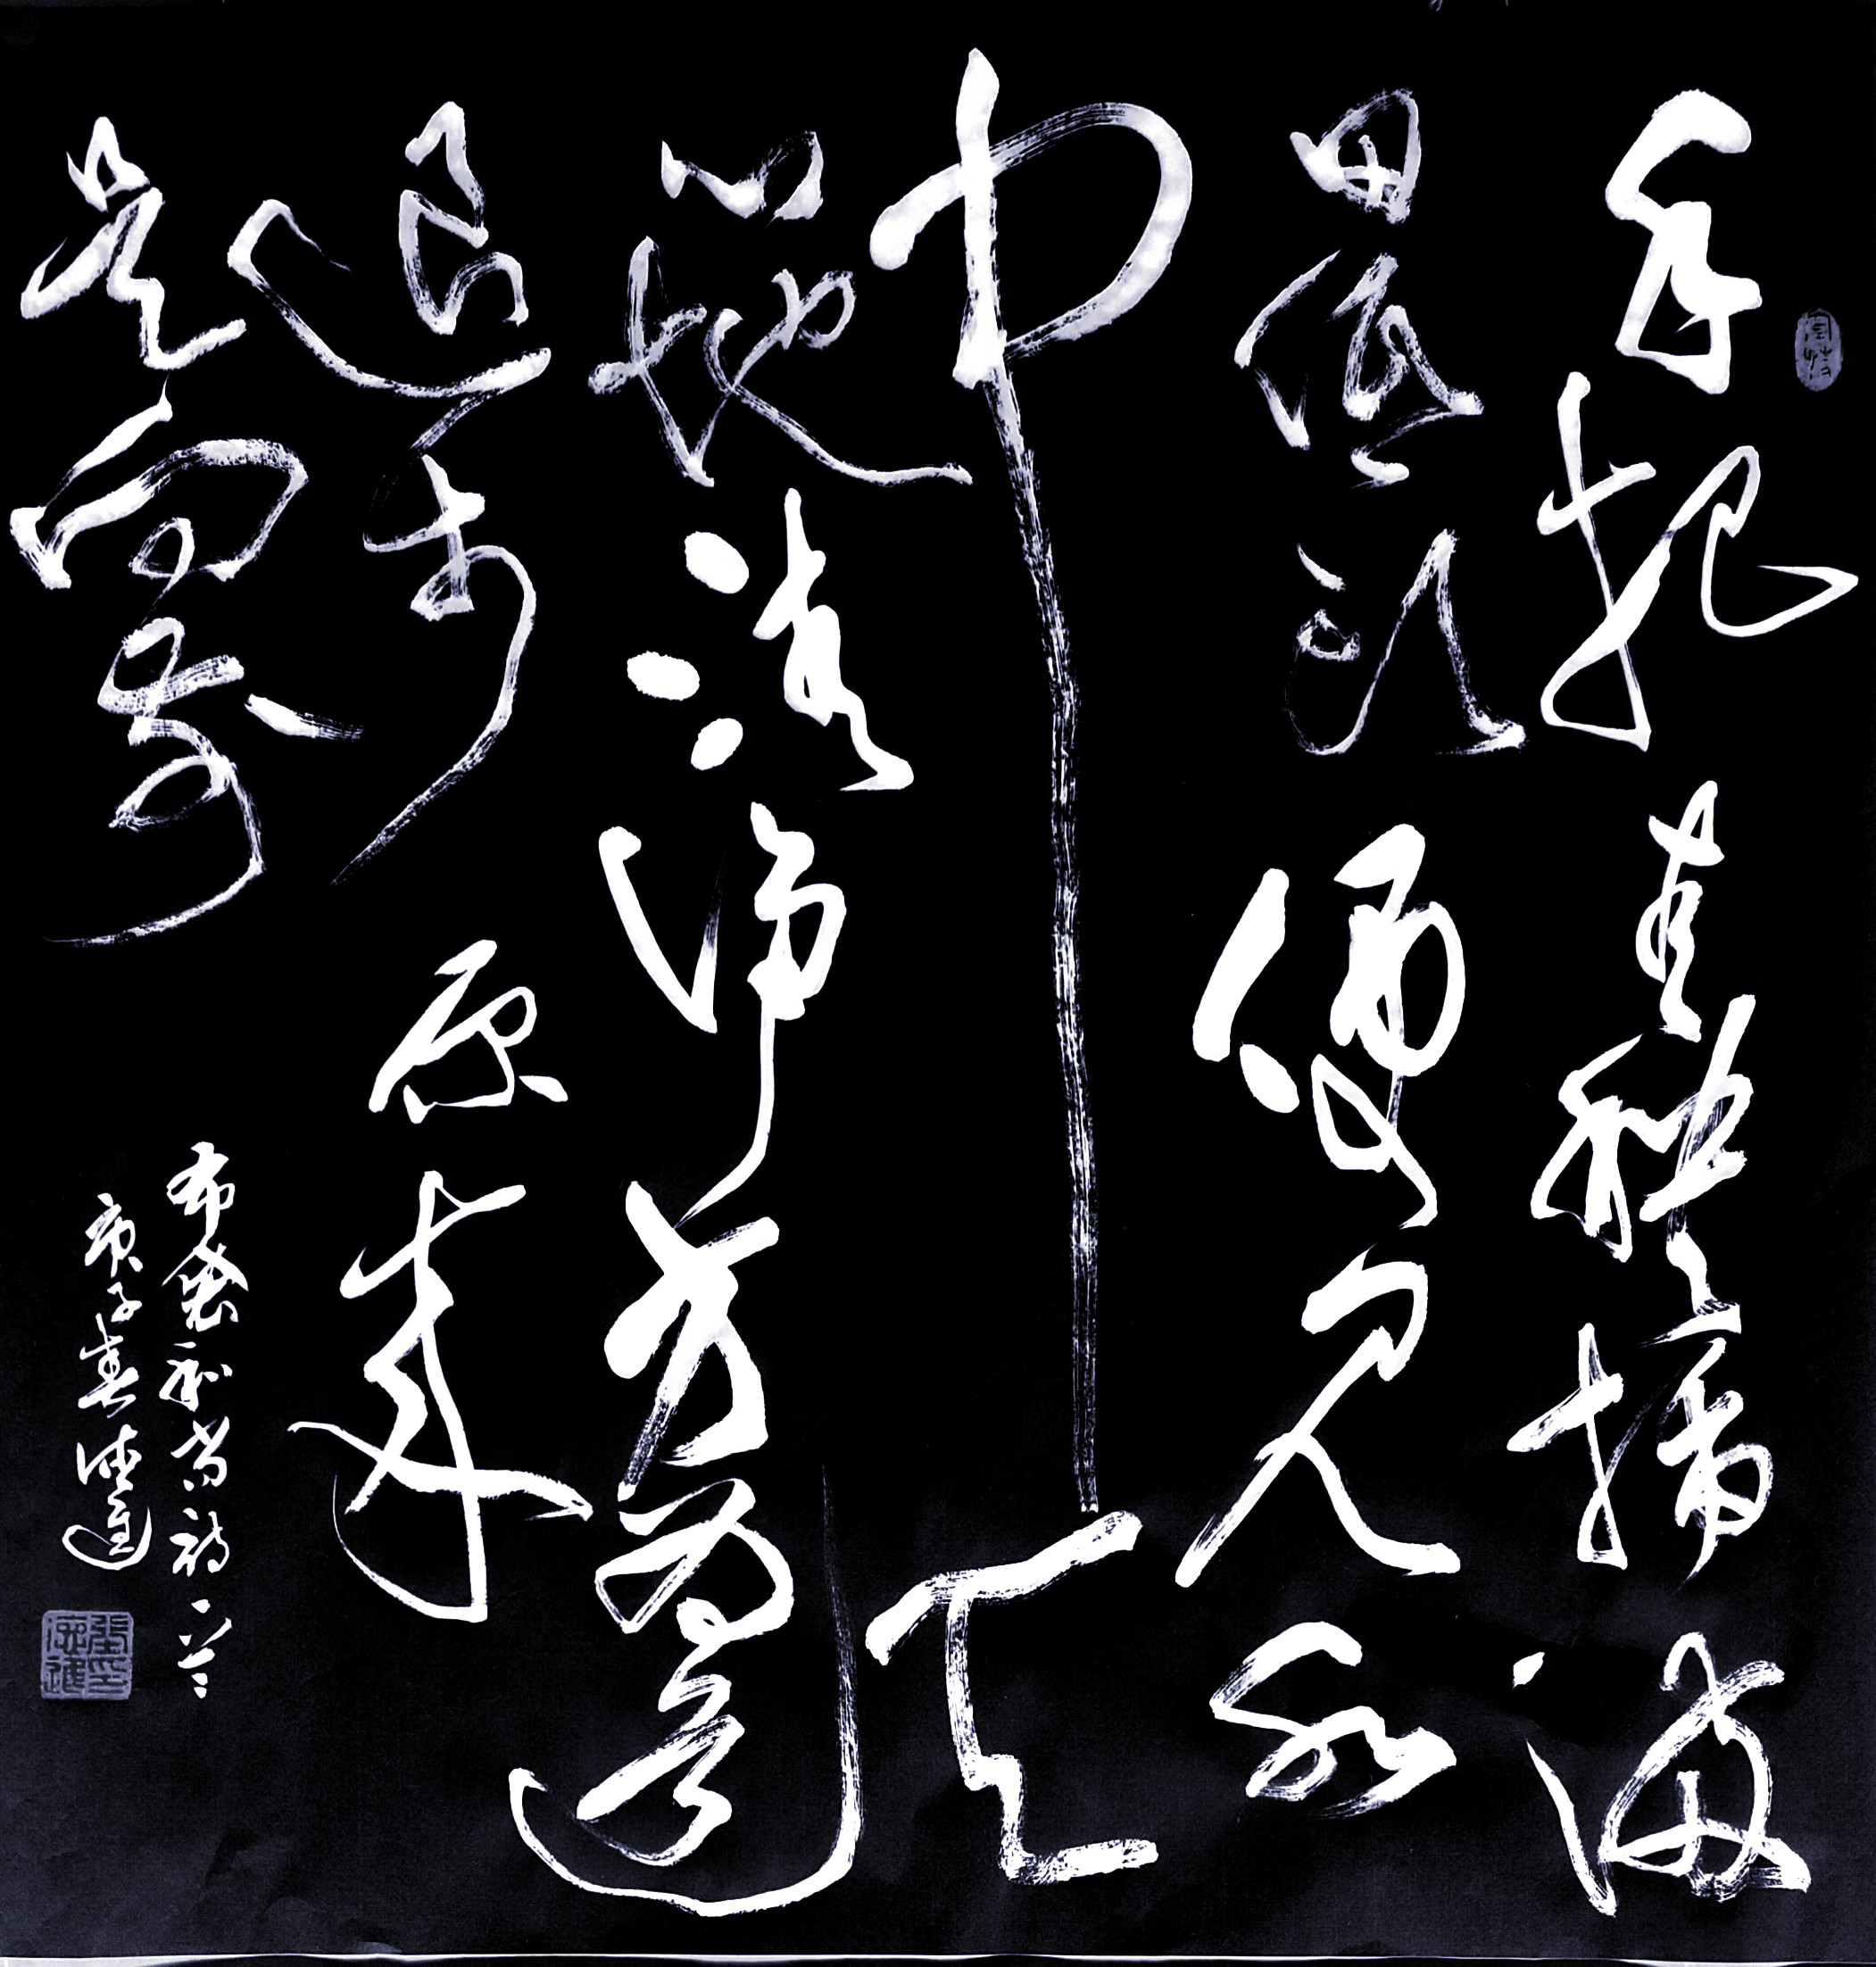 手把青秧插满
田低头便见水
中天
心地清净方为道
退步原来
是向前
布袋和尚诗一首
庚子春